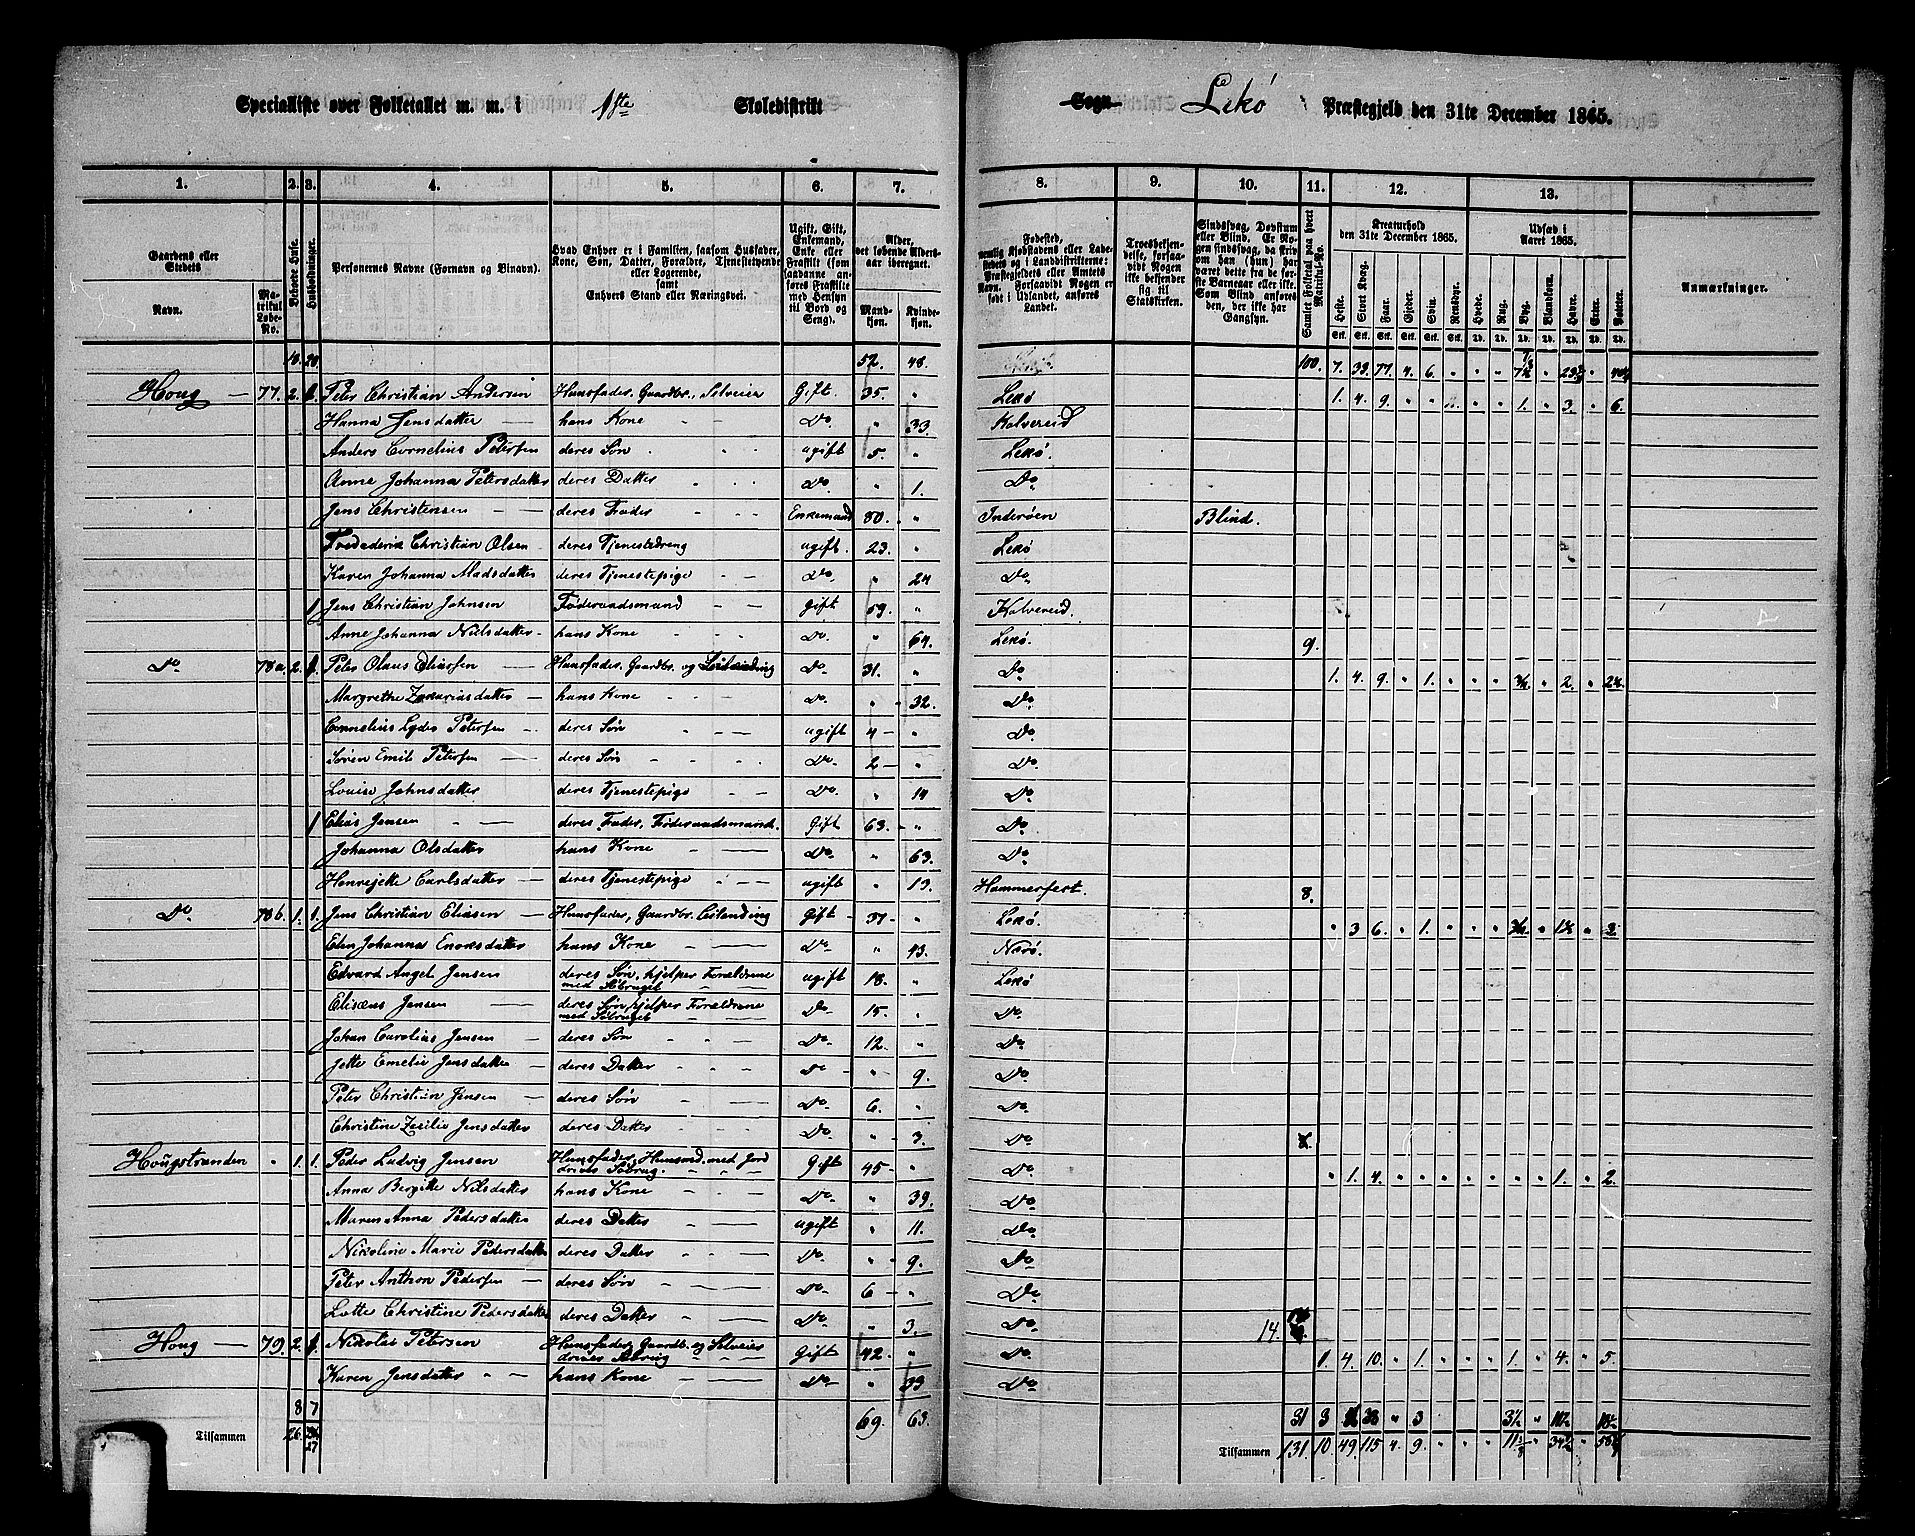 Specialliste over Folketallet m. m. i 1ste Skoledistrikt Sogn Lekø Præstegjeld den 31te December 1865.
1. 2. 3. 4. 5. 6. 7. 8. 9. 10. 11. 12. 13.
Gaardens eller Stedets
Navn. Matrikul Løbe-No.
Beboede Huse.
Husholdninger.
Personernes Navne (Fornavn og Tilnavn).
Hvad Enhver er i Familien, saasom Husfader, Kone, Søn, Datter, Forældre, Tjenestetyende eller Logerende, samt Enhvers Stand eller Næringsvei.
Ugift, Gift, Enkemand, Enke eller Fraskilt (som saadanne anføres Fraskilte med Hensyn til Bord og Seng).
Alder, det løbende Aldersaar iberegnet.
Mandkjøn. Kvindekjøn.
Fødested, nemlig Kjøbstadens eller Ladestedets og i Landdistrikterne: Præstegjeldets eller Amtets Navn. Forsaavidt Nogen er født i Udlandet, anføres Landet.
Troesbekjendelse, forsaavidt Nogen ikke bekjender sig til Statskirken.
Sindssvag, Døvstum eller Blind. Er Nogen sindssvag, da tilføies om han (hun) har været dette fra de første Barneaar eller ikke. Som Blind anføres den, der ikke har Gangsyn.
Samlet Folketal paa hvert Matrikul-No.
Kreaturhold den 31te December 1865.
Heste. Stort Kvæg. Faar. Gjeder. Svin. Rensdyr.
Udsæd i Aaret 1865.
Hvede. Rug. Byg. Blandkorn. Havre. Erter. Poteter.
Anmærkninger.
18. 20. 52. 48. 100. 7. 33. 77. 4. 6.
Houg 77. 2. Peter Christian Andersen Huusfader, Gaardbr., Selveier Gift 35. Lekø 1. 4. 9. 1. 3. 6.
Hanna Jensdatter hans Kone Do. 33. Kolvereid
Anders Cornelius Petersen deres Søn ugift 5. Lekø.
Anne Johanna Petersdatter deres Datter Do. 1. Do
Jens Christensen deres Fader Enkemand 80. Inderøen Blind.
Frederik Christian Olsen deres Tjenestedreng ugift. 23. Lekø
Karen Johanna Madsdatter deres Tjenestepige Do. 24 Do
1 Jens Christian Johnsen Føderaadsmand gift 59. Kolvereid.
Anne Johanna Nielsdatter hans Kone Do. 64. Lekø. 9.
Do 78a 2. Peter Olaus Eliassen Huusfader, Gaardbr. og Leilænding Do. 31. Do 1. 4. 9. 1. 2.
Margrethe Zakariasdatter hans Kone Do. 32. Do
Cornelius Lydes Petersen deres Søn ugift 4 Do.
Søren Emil Petersen deres Søn Do. 2 Do.
Louise Johnsdatter deres Tjenestepige Do. 14 Do.
1 Elias Jensen deres Fader, Føderaadsmand. Gift 63. Do.
Johanna Olsdatter hans Kone Do. 63. Do.
Henrejette Carlsdatter deres Tjenestepige ugift 13. Hammerfest. 8.
Do. 78b. 1. 1. Jens Christian Eliasen Huusfader, Gaardbr. Leilænding Gift 37. Lekø. 3 6. 1.
Elen Johanna Enoksdatter hans Kone Do 43. Nærø.
Edvard Angel Jensen deres Søn, hjelper Forældrene med Søbruget ugift 18. Lekø
Elisæus Jensen deres Søn, hjelper Forældrene med Søbruget Do 15. Do.
Johan Carolius Jensen deres Søn Do. 12. Do.
Jette Emelie Jensdatter deres Datter Do 9. Do.
Peter Christian Jensen deres Søn Do 6. Do.
Christine Zesilie Jensdatter deres Datter Do 3. Do.
Hougstranden 1. 1. Peder Ludvig Jensen Huusfader, Huusmd. med Jord drives Søbrug Gift 45. Do. 1. 4. 1. 2.
Anna Bergitte Nilsdatter hans Kone Do. 39. Do.
Maren Anna Pedersdatter deres Datter ugift 11. Do.
Nikoline Marie Pedersdatter deres Datter Do. 9. Do.
Peter Anthon Pedersen deres Søn Do. 6 Do.
Lotte Christine Pedersdatter deres Datter Do. 3. Do. 14.
Houg 79. 2. Nikolai Petersen Huusfader, Gaardb. og Selveier drives Søbrug Gift 42. Do. 1. 4. 10. 1. 1. 4. 5.
Karen Jensdatter hans Kone Do 39 Do
8 7 69. 63. 31 3 3
Tilsammen 26. 27 Tilsammen 131. 10. 49. 115 4. 9.